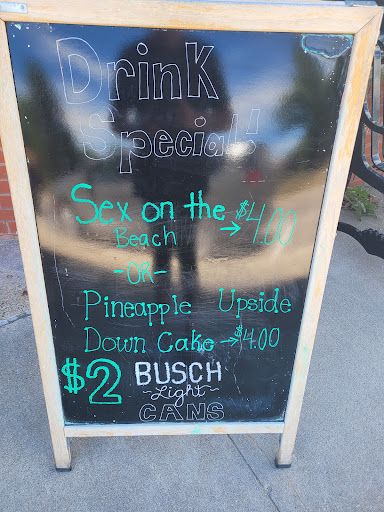 Drink
Special!
Sex on the
Beach → $4.00
-OR-
Pineapple Upside
Down Cake → $4.00
$2 BUSCH
~Light~
CANS